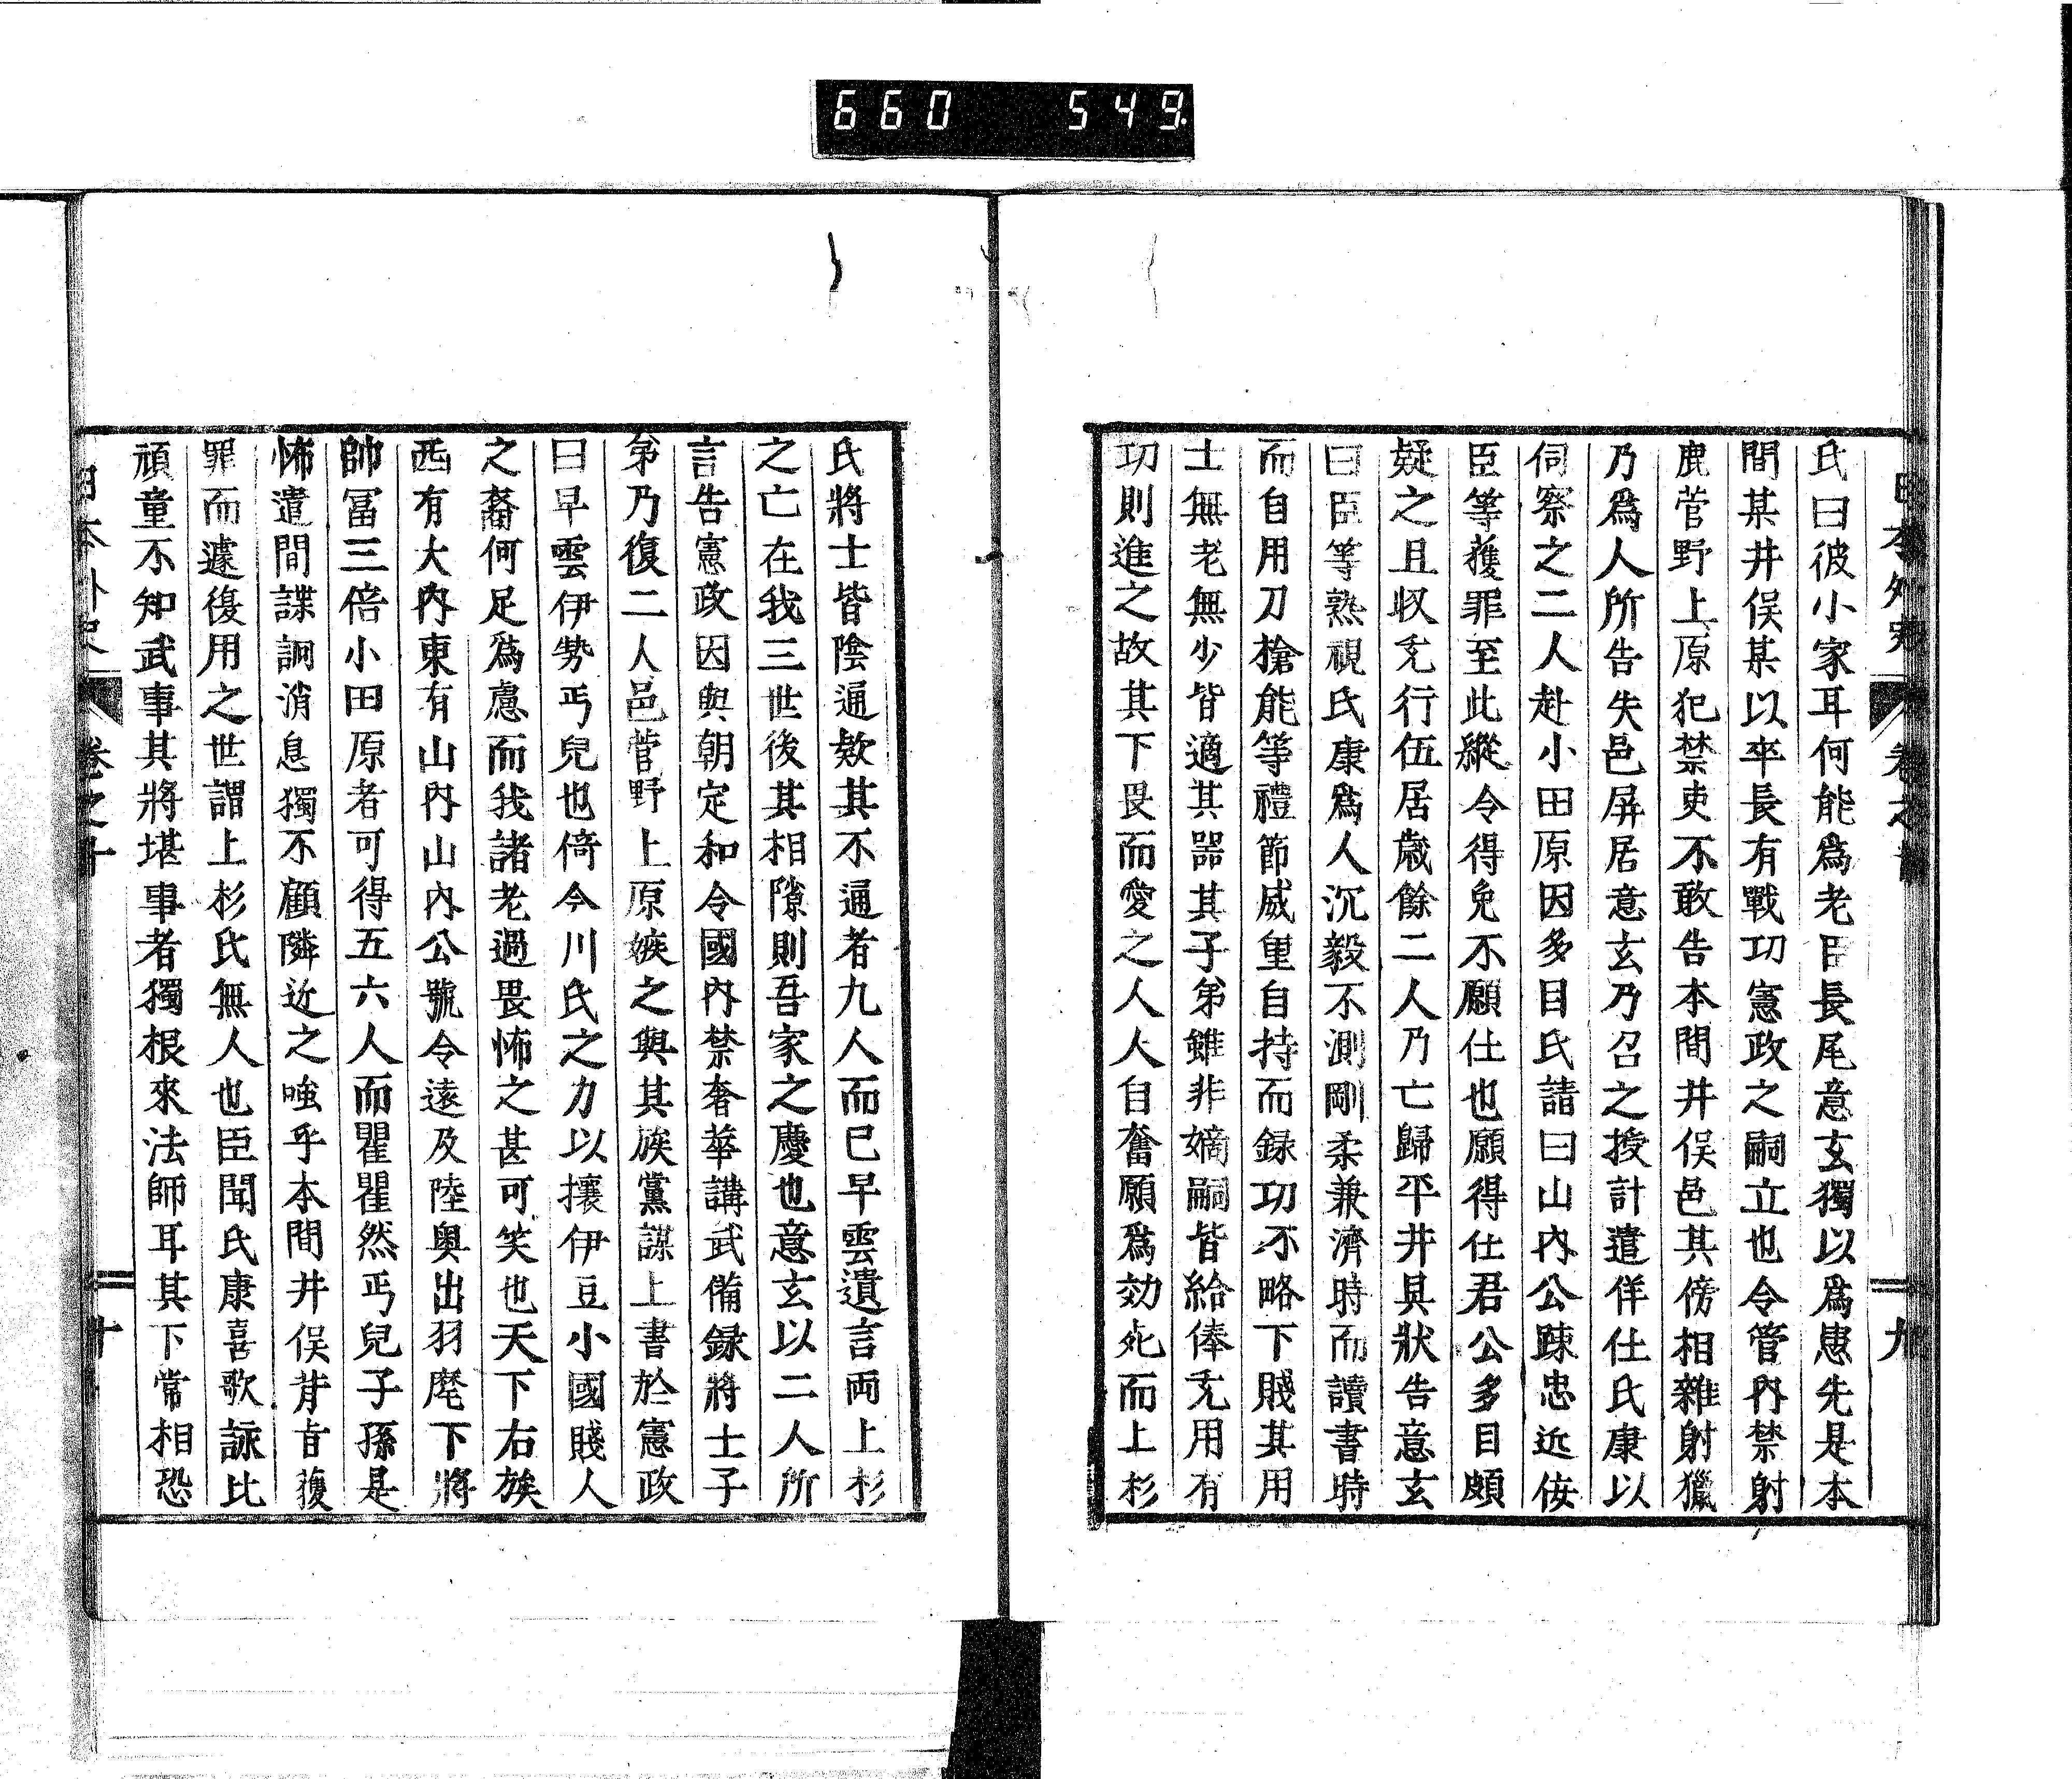 660 549.
氏曰彼小家耳何能爲老臣長尾意玄獨以爲患先是本
間某井俣某以卒長有戰功憲政之嗣立也令管內禁射
鹿菅野上原犯禁吏不敢告本間井俣邑其傍相雜射獵
乃爲人所告失邑屏居意玄乃召之授計遣佯仕氏康以
伺察之二人赴小田原因多目氏請曰山內公踈忠近佞
臣等獲罪至此縱令得免不願仕也願得仕君公多目頗
疑之且収充行伍居歲餘二人乃亡歸平井具狀告意玄
曰臣等熟視氏康爲人沉毅不測剛柔兼濟時而讀書時
而自用刀槍能等禮節威重自持而録功不略下賤其用
士無老無少皆適其器其子弟雖非嫡嗣皆給俸充用有
功則進之故其下畏而愛之人人自奮願爲効死而上杉
氏將士皆陰通欵其不通者九人而已早雲遺言両上杉
之亡在我三世後其相隙則吾家之慶也意玄以二人所
言告憲政因與朝定和令國內禁奢華講武備録將士子
弟乃復二人邑菅野上原嫉之與其族黨謀上書於憲政
曰早雲伊勢丐兒也倚今川氏之力以攘伊豆小國賤人
之裔何足爲慮而我諸老過畏怖之甚可笑也天下右族
西有大內東有山內山內公號令遠及陸奥出羽麾下將
帥冨三倍小田原者可得五六人而瞿瞿然丐兒子孫是
怖遣間諜詗消息獨不顧隣近之嗤乎本間井俣甞有獲
罪而遽復用之世謂上杉氏無人也臣聞氏康喜歌詠比
頑童不知武事其將堪事者獨根來法師耳其下常相恐
日本外史 卷之十 十